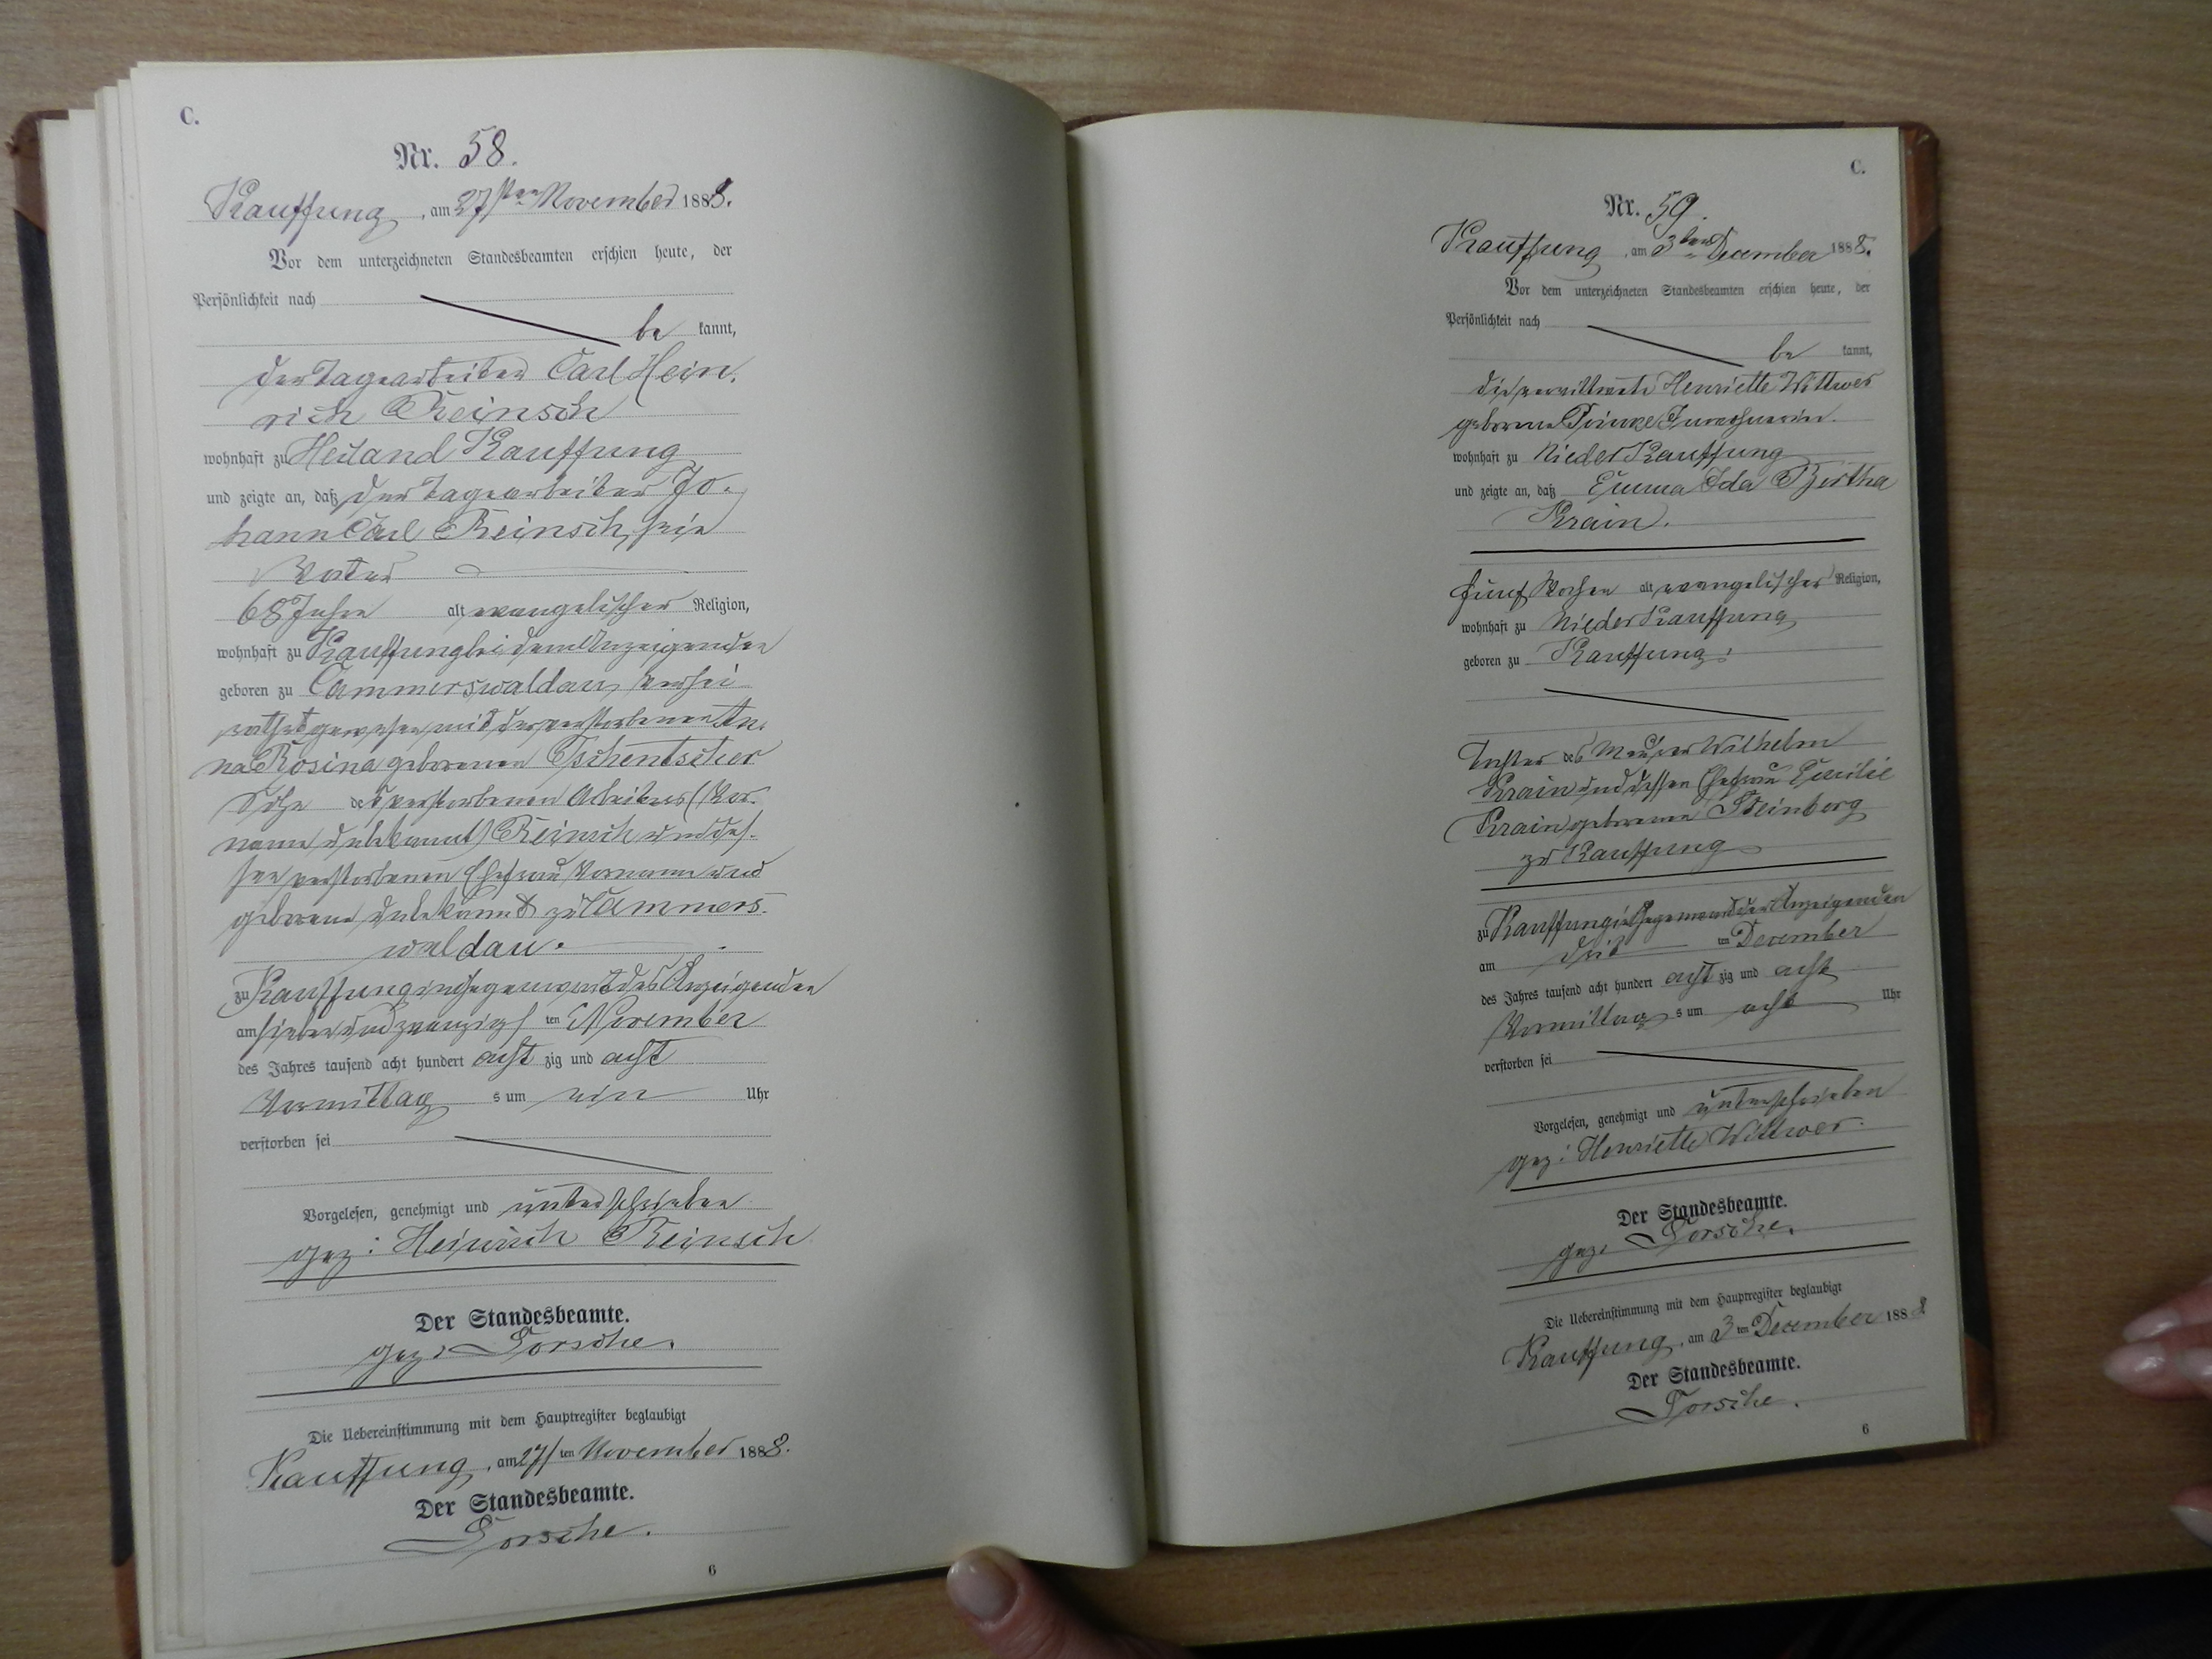 C.
Nr. 58.
Kauffung, am 27sten November 1888.
Vor dem unterzeichneten Standesbeamten erschien heute, der
Persönlichkeit nach
be kannt,
der Tagearbeiter Carl Hein-
rich Reinsch
wohnhaft zu Heiland Kauffung
und zeigte an, daß der Tagearbeiter Jo-
hann Carl Reinsch, sein
Vater
68 Jahre alt evangelischer Religion,
wohnhaft zu Kauffung bei dem Anzeigenden
geboren zu Cammerswaldau, verhei
rathet gewesen mit der verstorbenen An-
na Rosina geborenen Tschentscher
Sohn des verstorbenen Arbeiters (Vor-
name unbekannt) Reinsch und des-
sen verstorbenen Ehefrau Vorname und
geborene unbekannt zu Cammers-
waldau.
zu Kauffung in Gegenwart des Anzeigenden
am siebenundzwanzigs ten November
des Jahres tausend acht hundert acht zig und acht
Vormittag s um ein Uhr
verstorben sei
Vorgelesen, genehmigt und unterschrieben
gez: Heinrich Reinsch
Der Standesbeamte.
gez: Torsche.
Die Uebereinstimmung mit dem Hauptregister beglaubigt
Kauffung, am 27/ten November 1888.
Der Standesbeamte.
Torsche.
6
C.
Nr. 59.
Kauffung, am 3ten December 1888.
Vor dem unterzeichneten Standesbeamten erschien heute, der
Persönlichkeit nach
be kannt,
die verwittwete Henriette Wittwer
geborene
wohnhaft zu Nieder Kauffung
und zeigte an, daß Emma Ida Bertha
Krain.
fünf Wochen alt, evangelischer Religion,
wohnhaft zu Nieder Kauffung
geboren zu Kauffung,
Tochter des Maurer Wilhelm
Krain und dessen Ehefrau Emilie
Krain, geborene Steinberg
zu Kauffung
zu Kauffung in Gegenwart der Anzeigenden
am drit ten December
des Jahres tausend acht hundert acht zig und acht
Vormittag s um acht Uhr
verstorben sei
Vorgelesen, genehmigt und unterschrieben
gez: Henriette Wittwer.
Der Standesbeamte.
gez: Torsche.
Die Uebereinstimmung mit dem Hauptregister beglaubigt
Kauffung, am 3 ten December 1888
Der Standesbeamte.
Torsche.
6